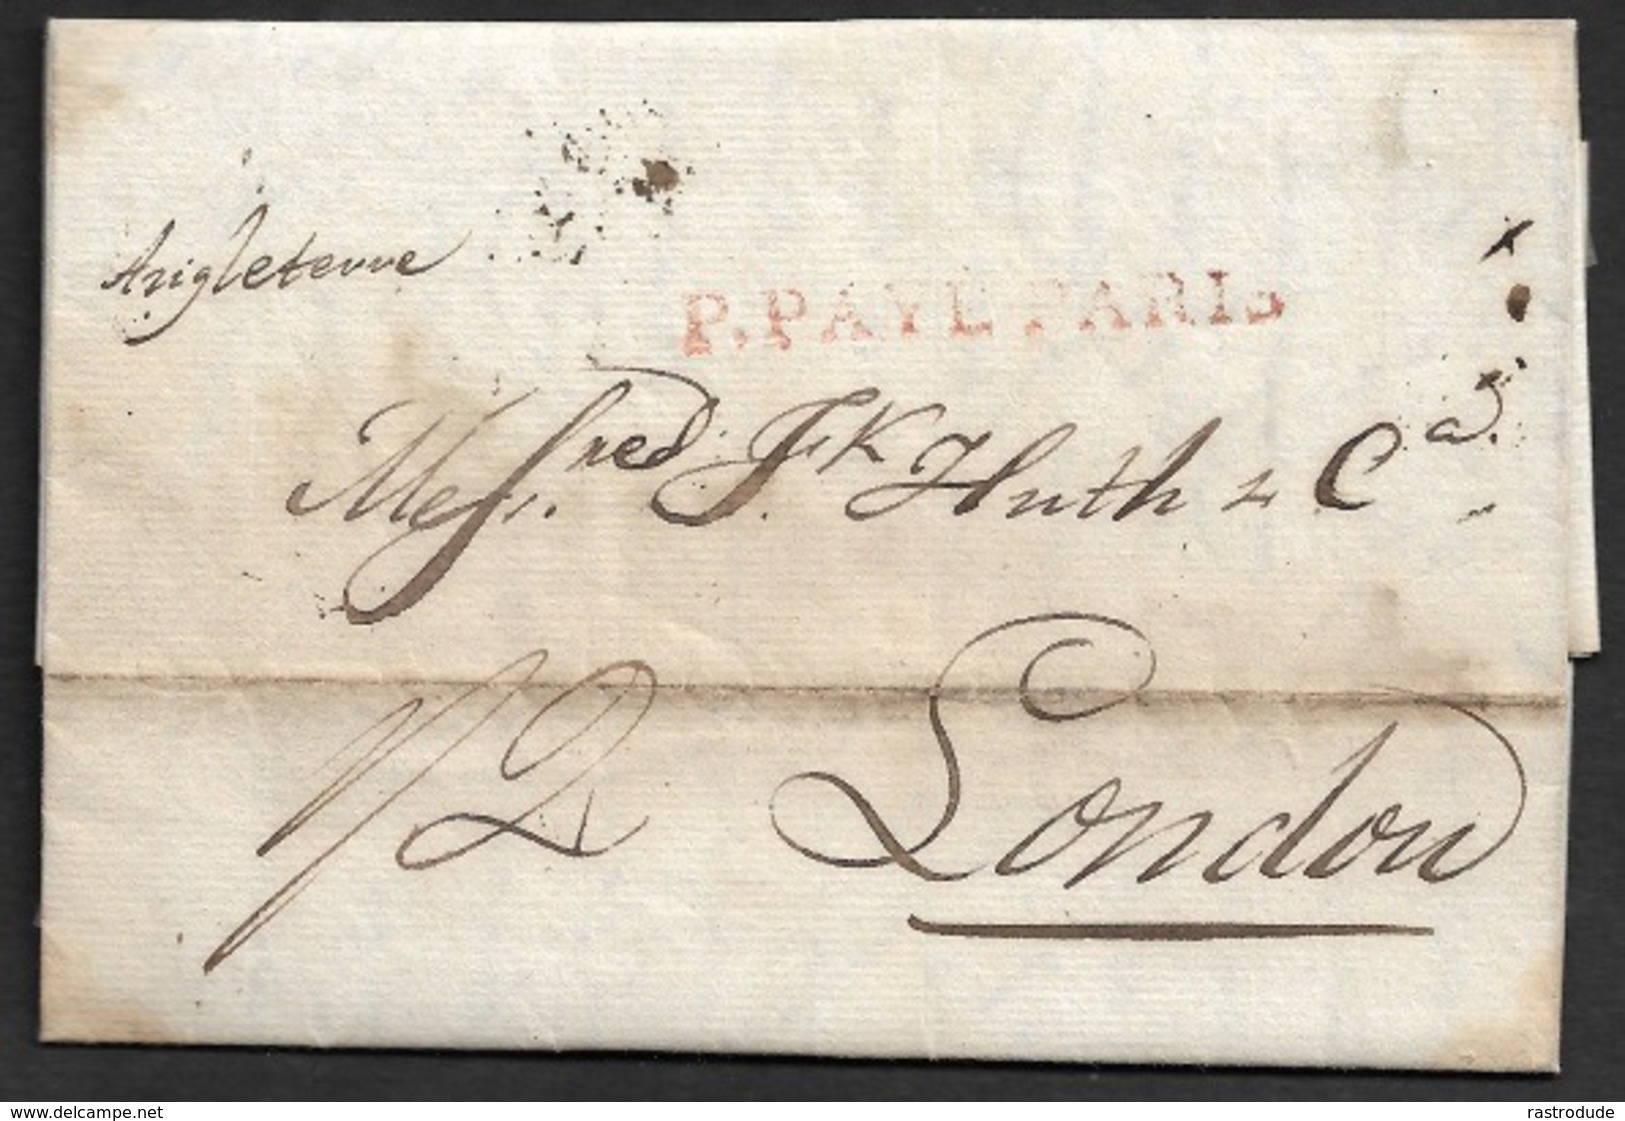 Angleterre
P.PAYE PARIS
Mess.red Fk Huth & Ca.
1/2 London
www.delcampe.net
rastrodude